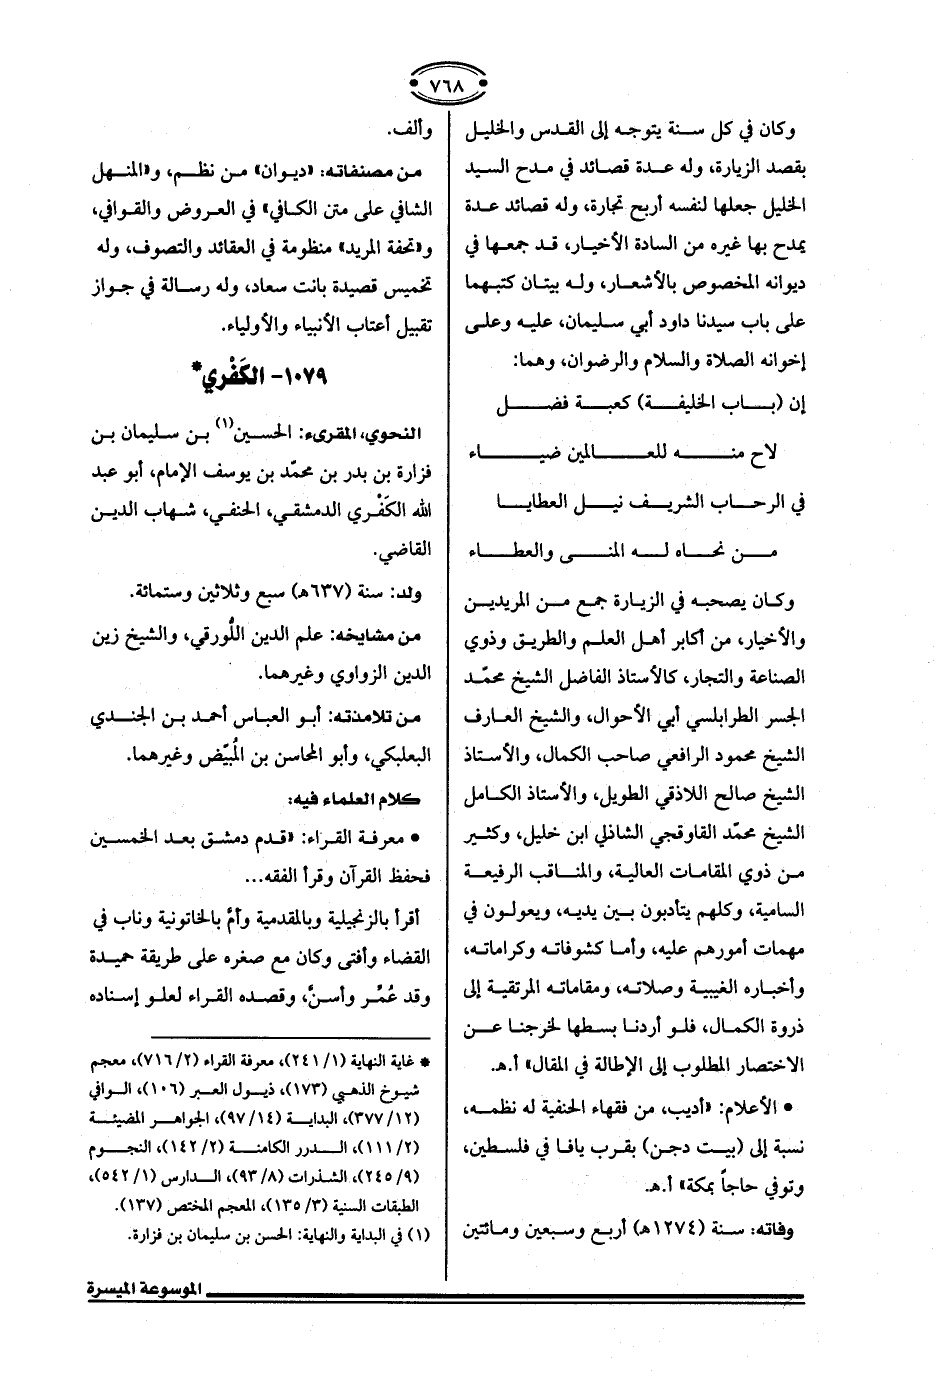 ٧٦٨
وكان في كل سنة يتوجه إلى القدس والخليل
بقصد الزيارة، وله عدة قصائد في مدح السيد
الخليل جعلها لنفسه أربح تجارة، وله قصائد عدة
يمدح بها غيره من السادة الأخيار، قد جمعها في
ديوانه المخصوص بالأشعار، وله بيتان كتبهما
على باب سيدنا داود أبي سليمان، عليه وعلى
إخوانه الصلاة والسلام والرضوان، وهما:
إن (باب الخليفة) كعبة فضل
لاح منه للعالمين ضياء
في الرحاب الشريف نيل العطايا
من نحاه له المنى والعطاء
وكان يصحبه في الزيارة جمع من المريدين
والأخيار، من أكابر أهل العلم والطريق وذوي
الصناعة والتجار، كالأستاذ الفاضل الشيخ محمّد
الجسر الطرابلسي أبي الأحوال، والشيخ العارف
الشيخ محمود الرافعي صاحب الكمال، والأستاذ
الشيخ صالح اللاذقي الطويل، والأستاذ الكامل
الشيخ محمّد القاوقجي الشاذلي ابن خليل، وكثير
من ذوي المقامات العالية، والمناقب الرفيعة
السامية، وكلهم يتأدبون بين يديه، ويعولون في
مهمات أمورهم عليه، وأما كشوفاته وكراماته،
وأخباره الغيبية وصلاته، ومقاماته المرتقية إلى
ذروة الكمال، فلو أردنا بسطها لخرجنا عن
الاختصار المطلوب إلى الإطالة في المقال» أ.هـ.
• الأعلام: «أديب، من فقهاء الحنفية له نظمه،
نسبة إلى (بيت دجن) بقرب يافا في فلسطين،
وتوفي حاجاً بمكة» أ.هـ.
وفاته: سنة (١٢٧٤هـ) أربع وسبعين ومائتين
وألف.
من مصنفاته: «ديوان» من نظم، و«المنهل
الشافي على متن الكافي» في العروض والقوافي،
و«تحفة المريد» منظومة في العقائد والتصوف، وله
تخميس قصيدة بانت سعاد، وله رسالة في جواز
تقبيل أعتاب الأنبياء والأولياء.
١٠٧٩- الكَفْري*
النحوي، المقرىء: الحسين(١) بن سليمان بن
فزارة بن بدر بن محمّد بن يوسف الإمام، أبو عبد
الله الكَفْري الدمشقي، الحنفي، شهاب الدين
القاضي.
ولد: سنة (٦٣٧هـ) سبع وثلاثين وستمائة.
من مشايخه: علم الدين اللُّورقي، والشيخ زين
الدين الزواوي وغيرهما.
من تلامذته: أبو العباس أحمد بن الجندي
البعلبكي، وأبو المحاسن بن المُبيّض وغيرهما.
كلام العلماء فيه:
• معرفة القراء: «قدم دمشق بعد الخمسين
فحفظ القرآن وقرأ الفقه...
أقرأ بالزنجيلية وبالمقدمية وأمَّ بالخاتونية وناب في
القضاء وأفتى وكان مع صغره على طريقة حميدة
وقد عُمِّر وأسنَّ، وقصده القراء لعلو إسناده
* غاية النهاية (١/ ٢٤١)، معرفة القراء (٢/ ٧١٦)، معجم
شيوخ الذهبي (١٧٣)، ذيول العبر (١٠٦)، الوافي
(١٢/ ٣٧٧)، البداية (١٤/ ٩٧)، الجواهر المضيئة
(٢/ ١١١)، الدرر الكامنة (٢/ ١٤٢)، النجوم
(٩/ ٢٤٥)، الشذرات (٨/ ٩٣)، الدارس (١/ ٥٤٢)،
الطبقات السنية (٣/ ١٣٥)، المعجم المختص (١٣٧).
(١) في البداية والنهاية: الحسن بن سليمان بن فزارة.
الموسوعة الميسرة